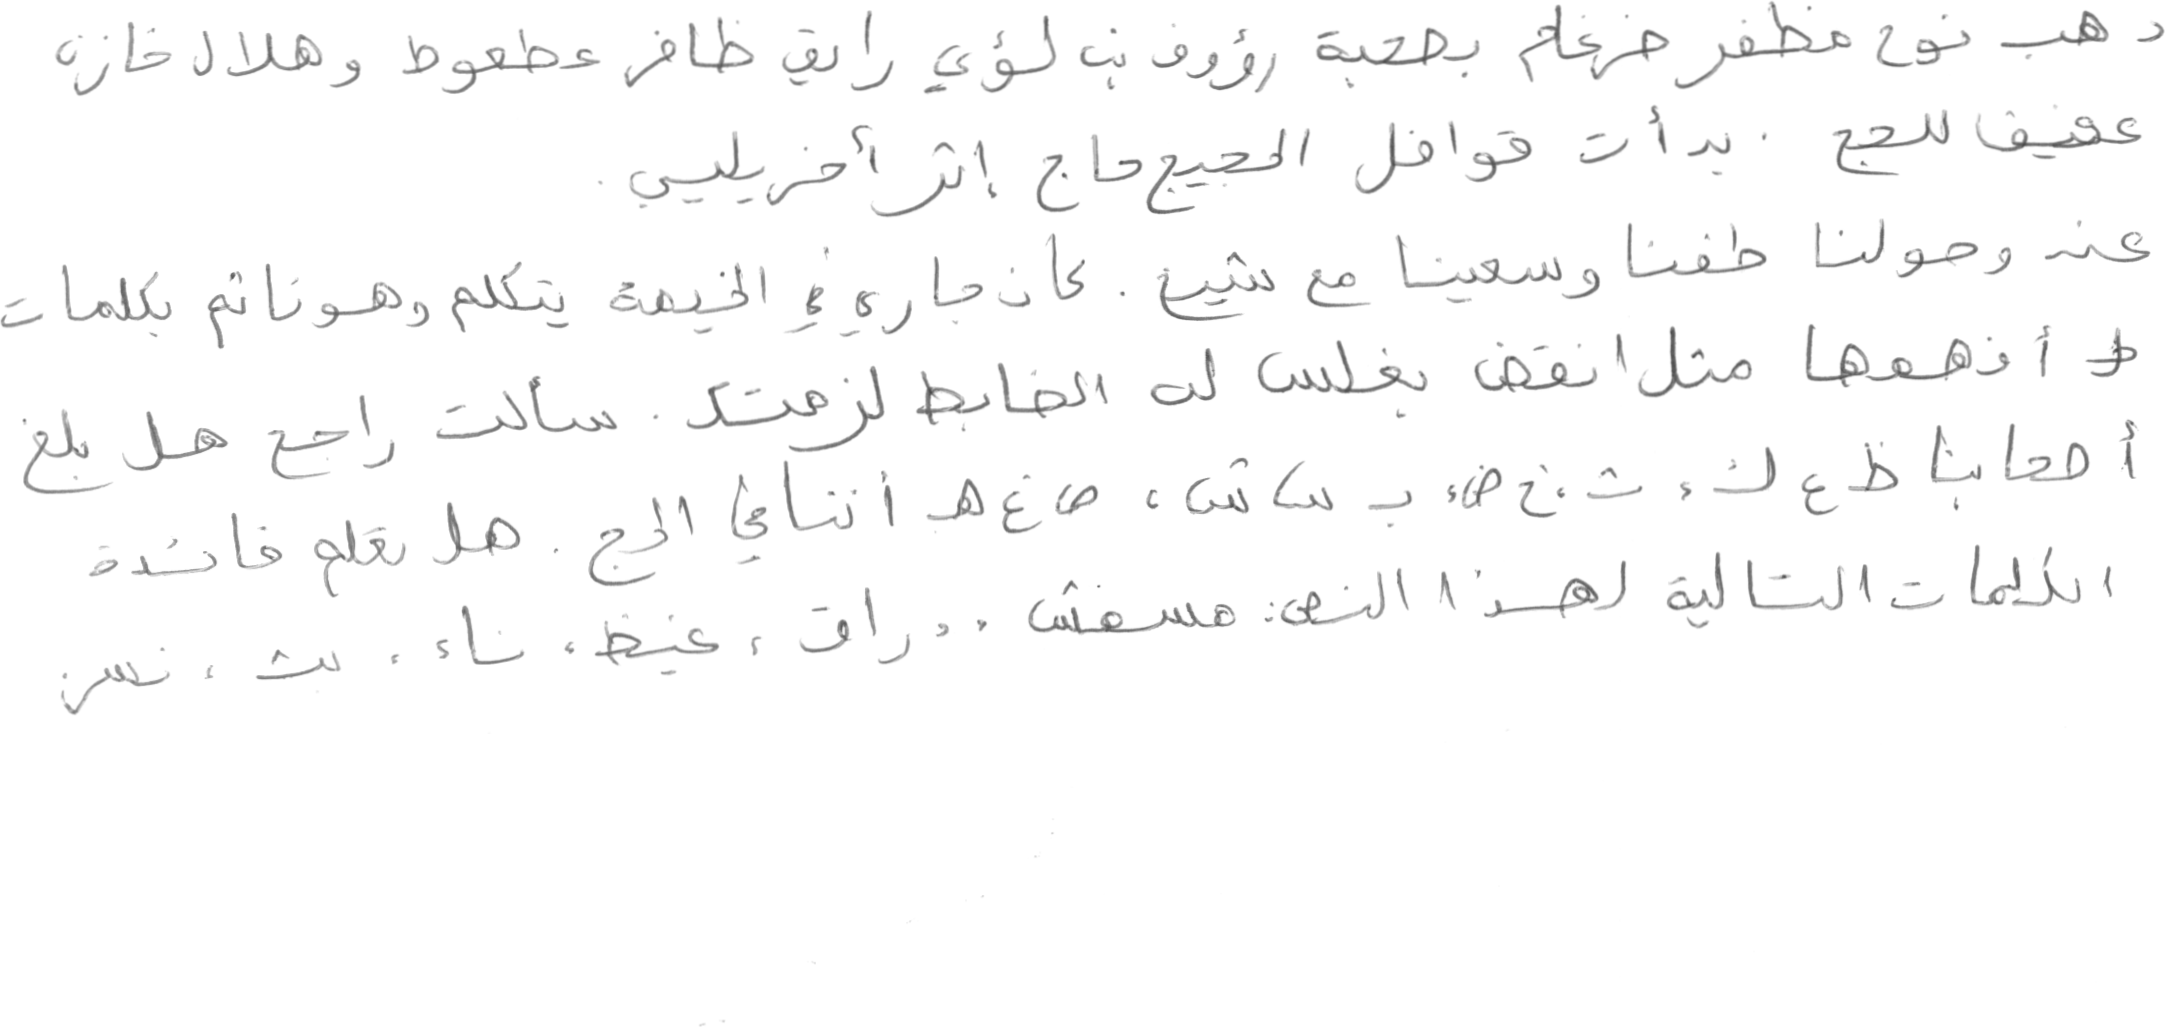 ذهب نوح مظفر ضرغام بصحبة رؤوف بن لؤي رايق ظافر عطعوط وهلال خازن
عفيف للحج . بدأت قوافل الحجيج حاج إثر أخر يلبي .
عند وصولنا طفنا وسعينا مع شيخ . كان جاري في الخيمة يتكلم وهو نائم بكلمات
لا أفهمها مثل انقض بغلس له الضابط لزمتك . سألت راجح هل بلغ
أصحابنا ظ ع ك ، ث ، خ ض ، ب س ش ، ص غ هـ أننا في الحج . هل تعلم فائدة
الكلمات التالية لهذا النص : مسفش ، ، راق ، غيظ ، ناء ، بث ، نسر